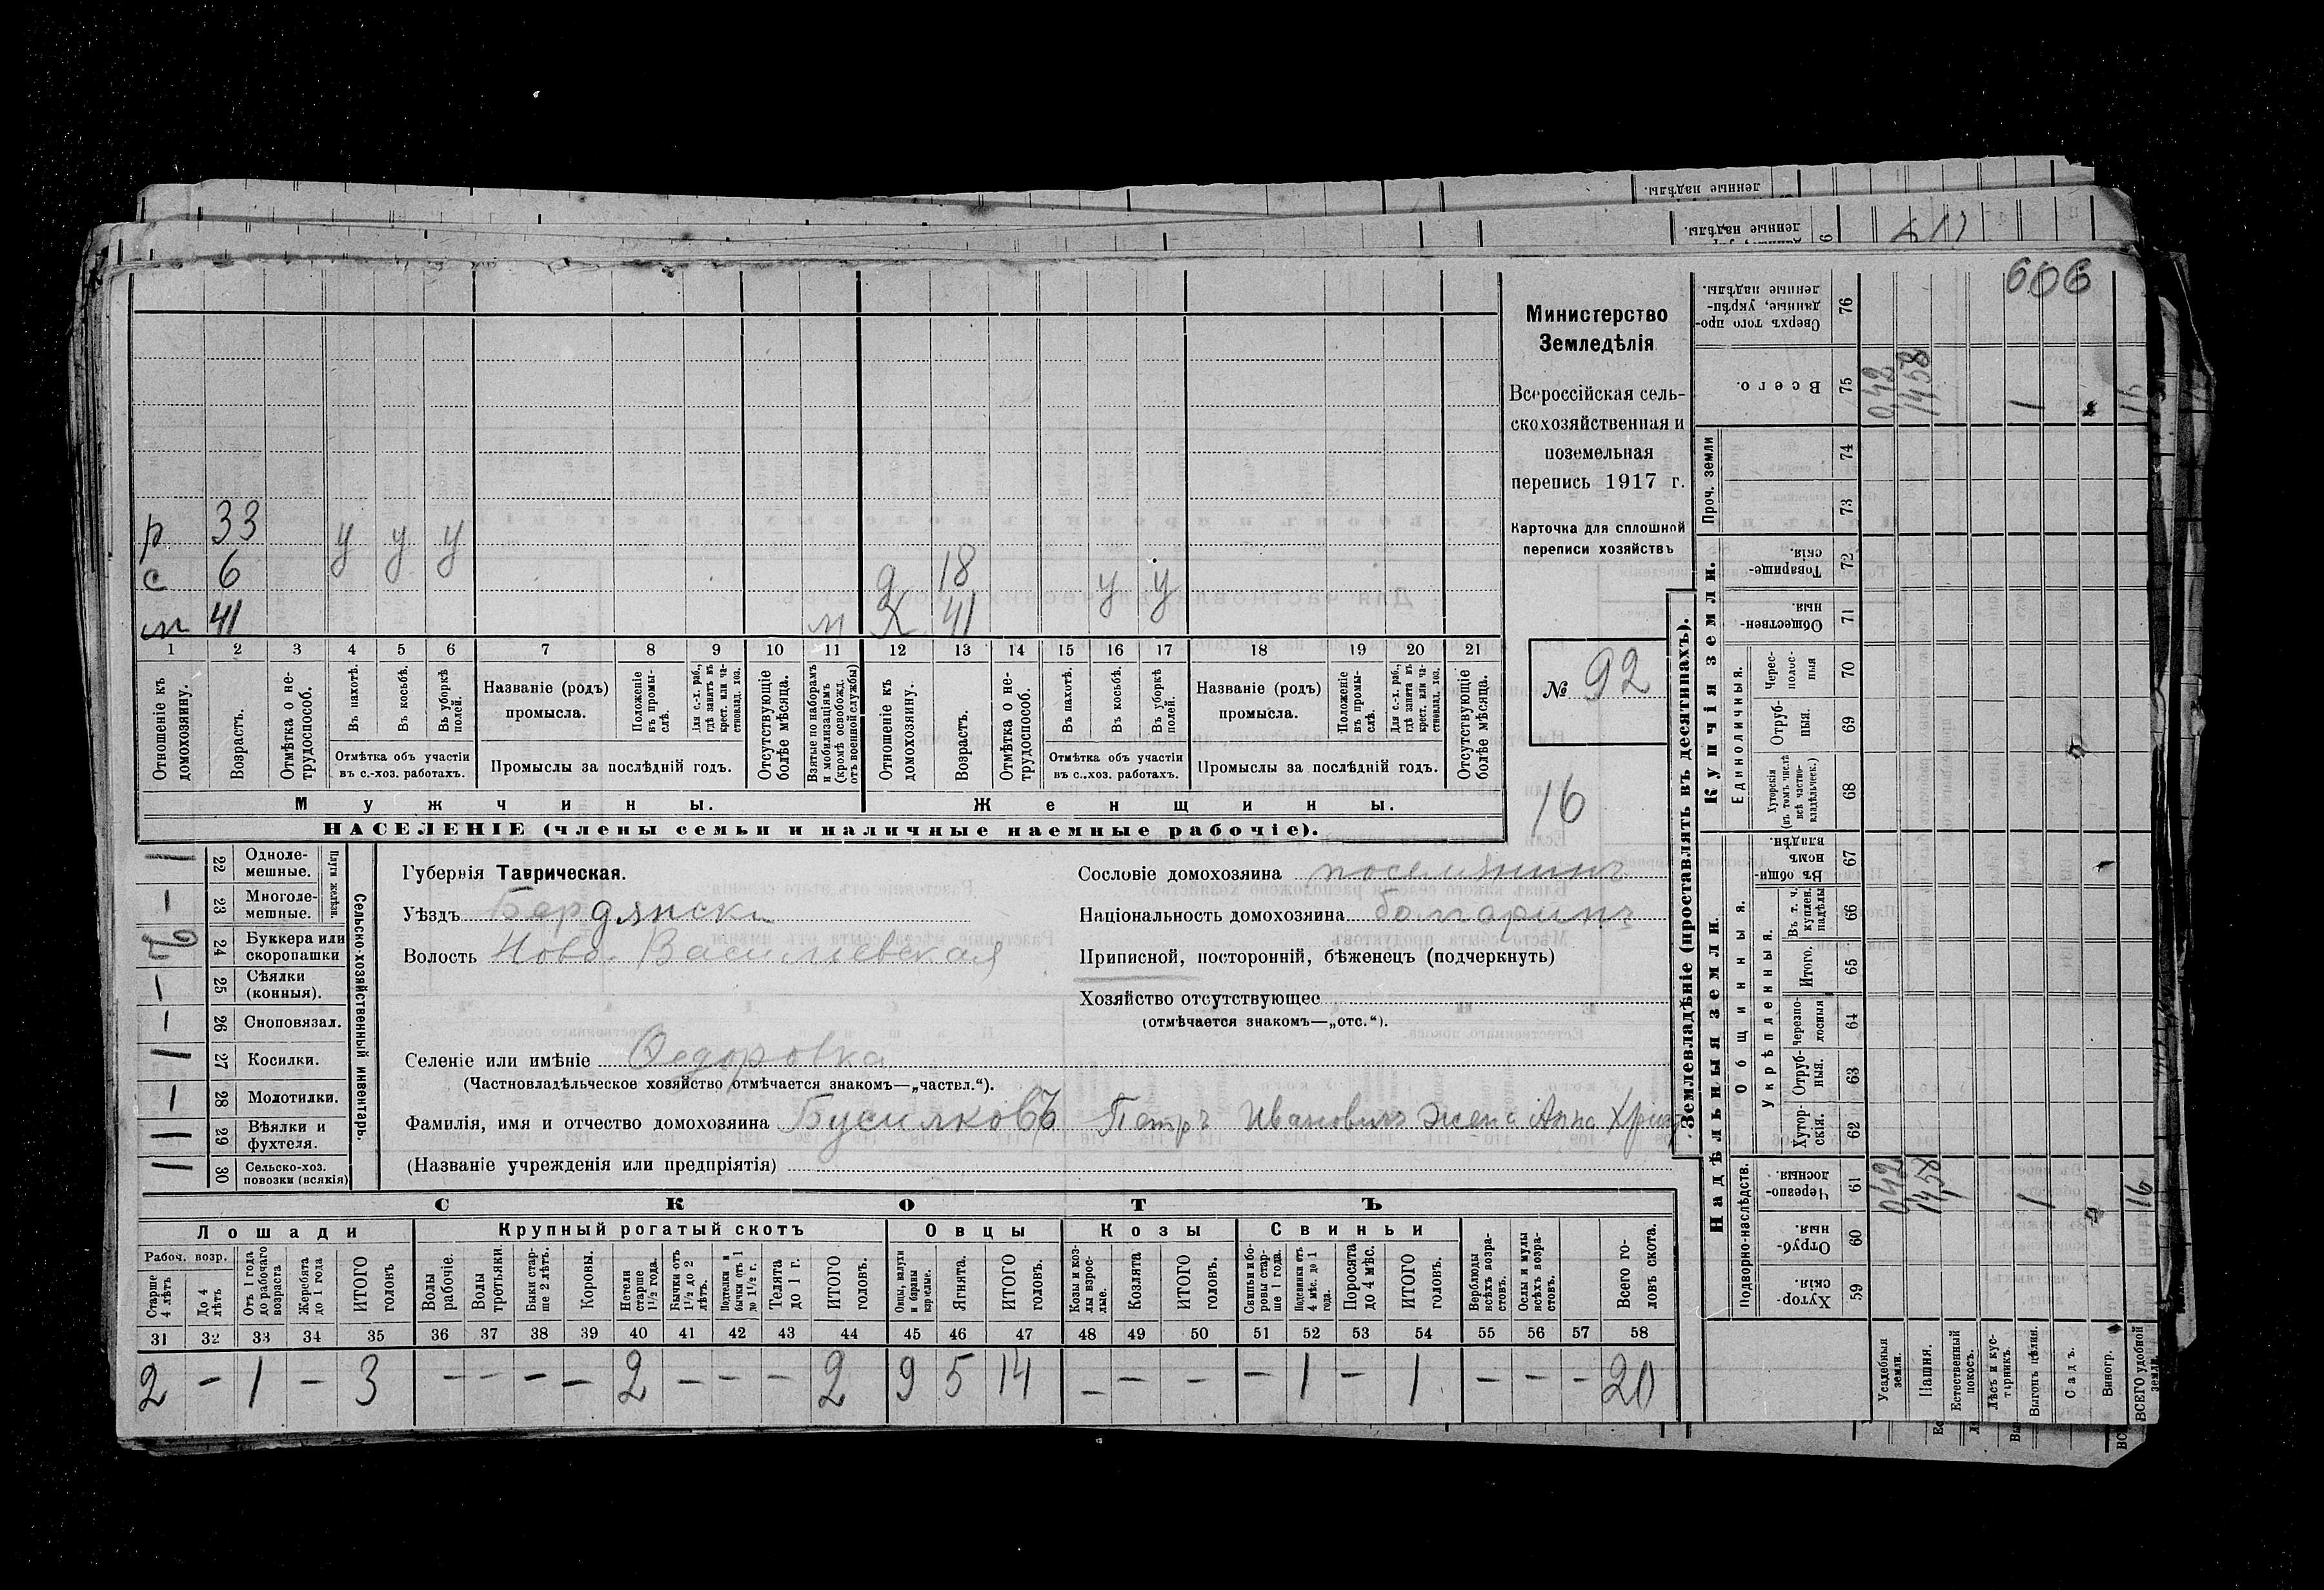 606
Министерство
Земледѣлія
Всероссійская сель-
скохозяйственная и
поземельная
перепись 1917 г.
Карточка для сплошной
переписи хозяйствъ
№ 92
16
р 33 у у у
с 6 д 18 у у
м 41 м Ж 41
1 2 3 4 5 6 7 8 9 10 11 12 13 14 15 16 17 18 19 20 21
Отношеніе къ домохозяину.
Возрастъ.
Отмѣтка о не-трудоспособ.
Въ пахотѣ.
Въ косьбѣ.
Въ уборкѣ полей.
Отмѣтка объ участіи
въ с.-хоз. работахъ.
Названіе (родъ)
промысла.
Положеніе въ промы-слѣ.
Для с.-х. раб., гдѣ занятъ въ крест. или ча-стновлад. хоз.
Промыслы за послѣдній годъ.
Отсутствующіе болѣе мѣсяца.
Взятые по наборамъ и мобилизаціямъ (кромѣ освобожд. отъ военной службы)
Отношеніе къ домохозяину.
Возрастъ.
Отмѣтка о не-трудоспособ.
Въ пахотѣ.
Въ косьбѣ.
Въ уборкѣ полей.
Отмѣтка объ участіи
въ с.-хоз. работахъ.
Названіе (родъ)
промысла.
Положеніе въ промы-слѣ.
Для с.-х. раб., гдѣ занята въ крест. или ча-стновлад. хоз.
Промыслы за послѣдній годъ.
Отсутствующіе болѣе мѣсяца.
Мужчины. Женщины.
НАСЕЛЕНІЕ (члены семьи и наличные наемные рабочіе).
Сельско-хозяйственный инвентарь.
Плуги желѣзн.
1 22 Одноле-мешные.
– 23 Многоле-мешные.
24 Буккера или скоропашки
1 25 Сѣялки (конныя).
1 26 Сноповязал.
1 27 Косилки.
1 28 Молотилки.
1 29 Вѣялки и фухтеля.
1 30 Сельско-хоз. повозки (всякія)
Губернія Таврическая.
Уѣздъ Бердянскі
Волость Ново-Васильевская
Сословіе домохозяина поселянинъ
Національность домохозяина болгаринъ
Приписной, посторонній, бѣженецъ (подчеркнуть)
Хозяйство отсутствующее
(отмѣчается знакомъ—„отс.“).
Селеніе или имѣніе Ѳедоровка
(Частновладѣльческое хозяйство отмѣчается знакомъ—„частвл.“).
Фамилія, имя и отчество домохозяина Бусилковъ Петръ Ивановичъ жена Анна Хрис
(Названіе учрежденія или предпріятія)
СКОТЪ
Лошади Крупный рогатый скотъ Овцы Козы Свиньи
Рабоч. возр.
Старше 4 лѣтъ
До 4 лѣтъ
Отъ 1 года до рабочаго возраста
Жеребята до 1 года
ИТОГО головъ
Волы рабочіе.
Волы третьяки.
Быки стар-ше 2 лѣтъ.
Коровы.
Нетели старше 1½ года.
Бычки отъ 1½ до 2 лѣтъ.
Нетелки и бычки отъ 1 до 1½ г.
Телята до 1 г.
ИТОГО головъ.
Овцы, валухи и бараны взрослые.
Ягнята.
ИТОГО головъ.
Козы и коз-лы взрос-лые.
Козлята
ИТОГО головъ.
Свиньи и бо-ровы стар-ше 1 года.
Подсвинки отъ 4 мѣс. до 1 года.
Поросята до 4 мѣс.
ИТОГО головъ.
Верблюды всѣхъ возра-стовъ.
Ослы и мулы всѣхъ возра-стовъ.
Всего го-ловъ скота.
31 32 33 34 35 36 37 38 39 40 41 42 43 44 45 46 47 48 49 50 51 52 53 54 55 56 57 58
2 – 1 – 3 – – – – 2 – – – 2 9 5 14 – – – – 1 – 1 – – – 20
Землевладѣніе (проставлять въ десятинахъ).
Надѣльныя земли.
Подворно-наслѣдств.
Хутор-скія. 59
Отруб-ныя. 60
Черезпо-лосныя. 61
Общинныя.
Укрѣпленныя.
Хутор-скія. 62
Отруб-ныя. 63
Черезпо-лосныя 64
Итого. 65
Въ т. ч. куплен. надѣлы 66
Въ общин-номъ владѣн. 67
Купчія земли.
Единоличныя.
Хуторскія (въ томъ числѣ всѣ частно-владѣльческ.) 68
Отруб-ныя. 69
Черес-полос-ныя 70
Обществен-ныя. 71
Товарище-скія. 72
Проч. земли
73 74
Всего. 75
Сверхъ того про-данные, укрѣп-ленные надѣлы. 76
Усадебныя земли. 0,42 0,42
Пашня. 14,58 14,58
Естественный покосъ.
Лѣсъ и кус-тарникъ.
Выгонъ цѣлин. 1 1
Садъ.
Виногр.
ВСЕГО удобной земли. 16 16